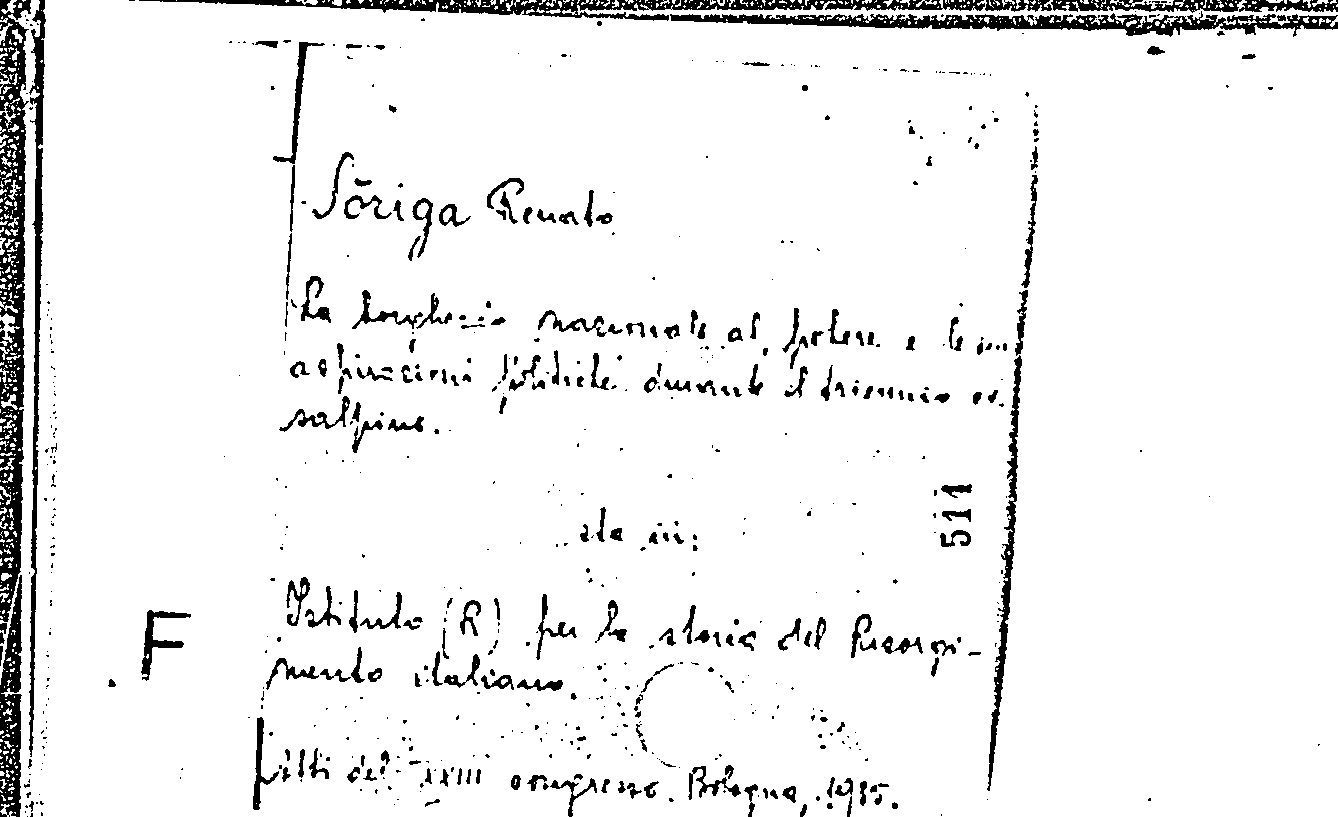 Sŏriga Renato
La borghesia nazionale al potere e le sue
aspirazioni politiche durante il triennio ci-
salpino.
sta in:
511
F
Istituto (R) per la storia del Risorgi-
mento italiano.
Atti del XXIII congresso. Bologna, 1935.